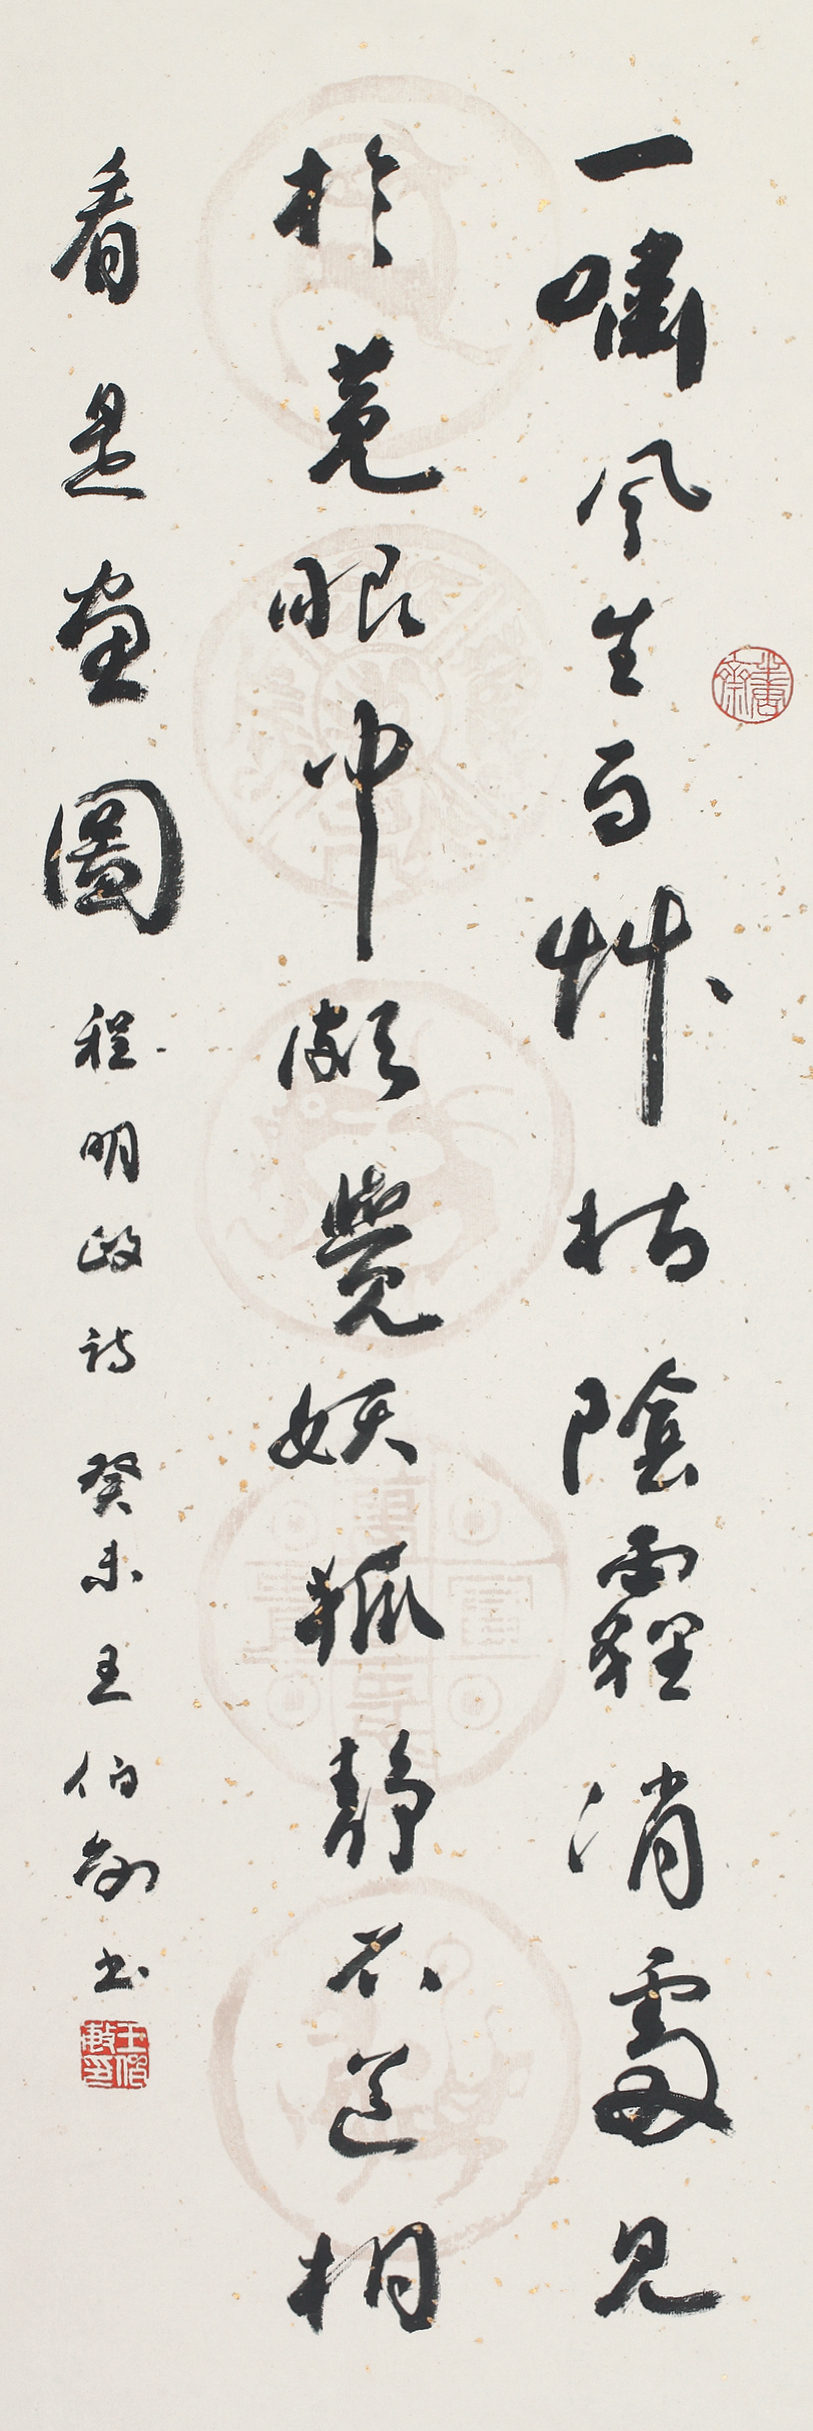 一嘯風生百艸枯陰霾消處見
於菟眼中頗覺妖狐靜不道相
看是畫圖 程明政詩 癸未 王伯敏書